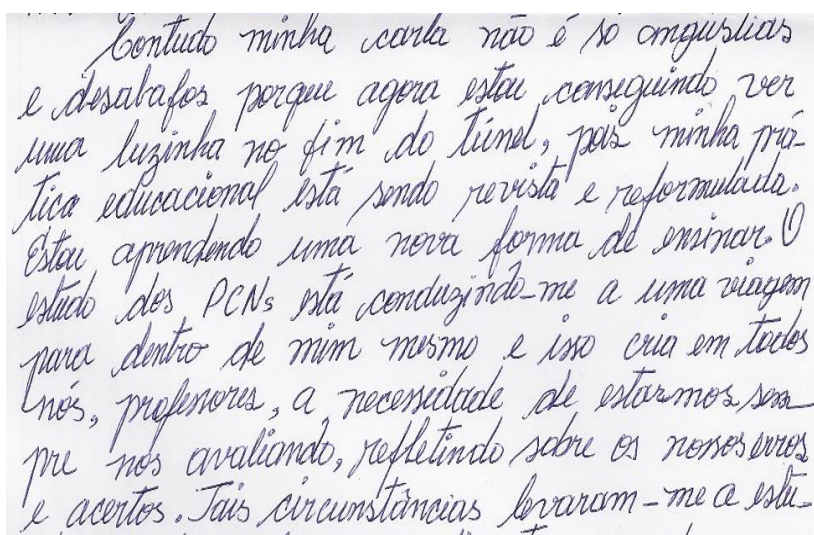 Contudo minha carta não é só angústias
e desabafos porque agora estou conseguindo ver
uma luzinha no fim do túnel, pois minha prá-
tica educacional está sendo revista e reformulada.
Estou aprendendo uma nova forma de ensinar. O
estudo dos PCNs está conduzindo-me a uma viagem
para dentro de mim mesmo e isso cria em todos
nós, professores, a necessidade de estarmos sem
pre nos avaliando, refletindo sobre os nossos erros
e acertos. Tais circunstâncias levaram-me a estu-